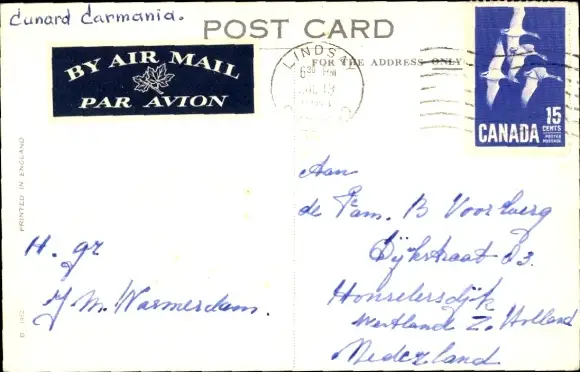 Cunard Carmania.
POST CARD
BY AIR MAIL
PAR AVION
FOR THE ADDRESS ONLY
LINDSAY
6 30 PM
13
15
CENTS
CANADA
POSTES
POSTAGE
PRINTED IN ENGLAND
H. gr
J M. Warmerdam.
Aan
de Fam. B Voorberg
Dÿkstraat 83.
Honselersdÿk
Westland Z. Holland
Nederland